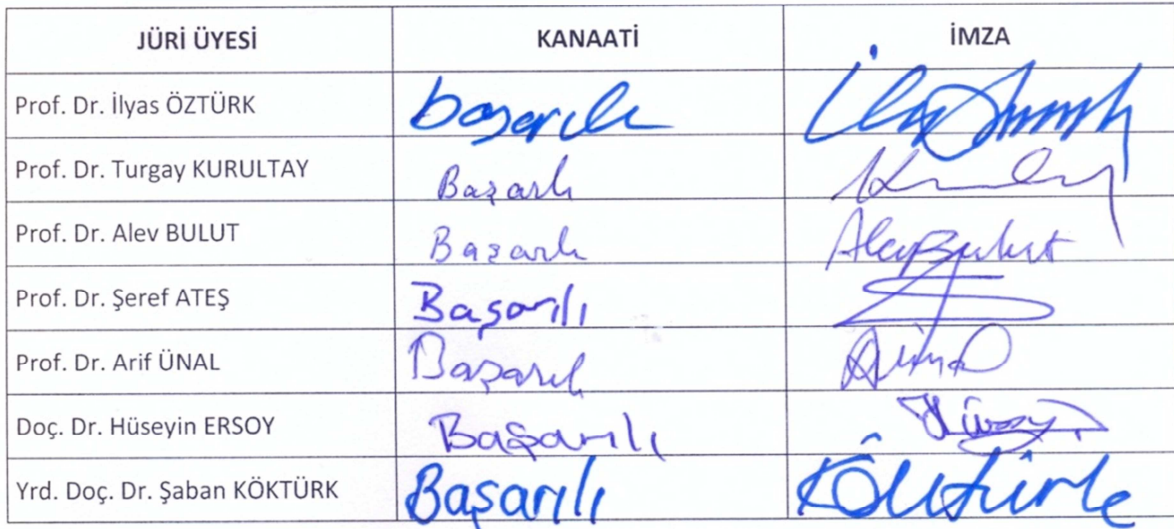 JÜRİ ÜYESİ KANAATİ İMZA
Prof. Dr. İlyas ÖZTÜRK başarılı
Prof. Dr. Turgay KURULTAY Başarılı
Prof. Dr. Alev BULUT Başarılı Alev Bulut
Prof. Dr. Şeref ATEŞ Başarılı
Prof. Dr. Arif ÜNAL Başarılı
Doç. Dr. Hüseyin ERSOY Başarılı
Yrd. Doç. Dr. Şaban KÖKTÜRK Başarılı Köktürk